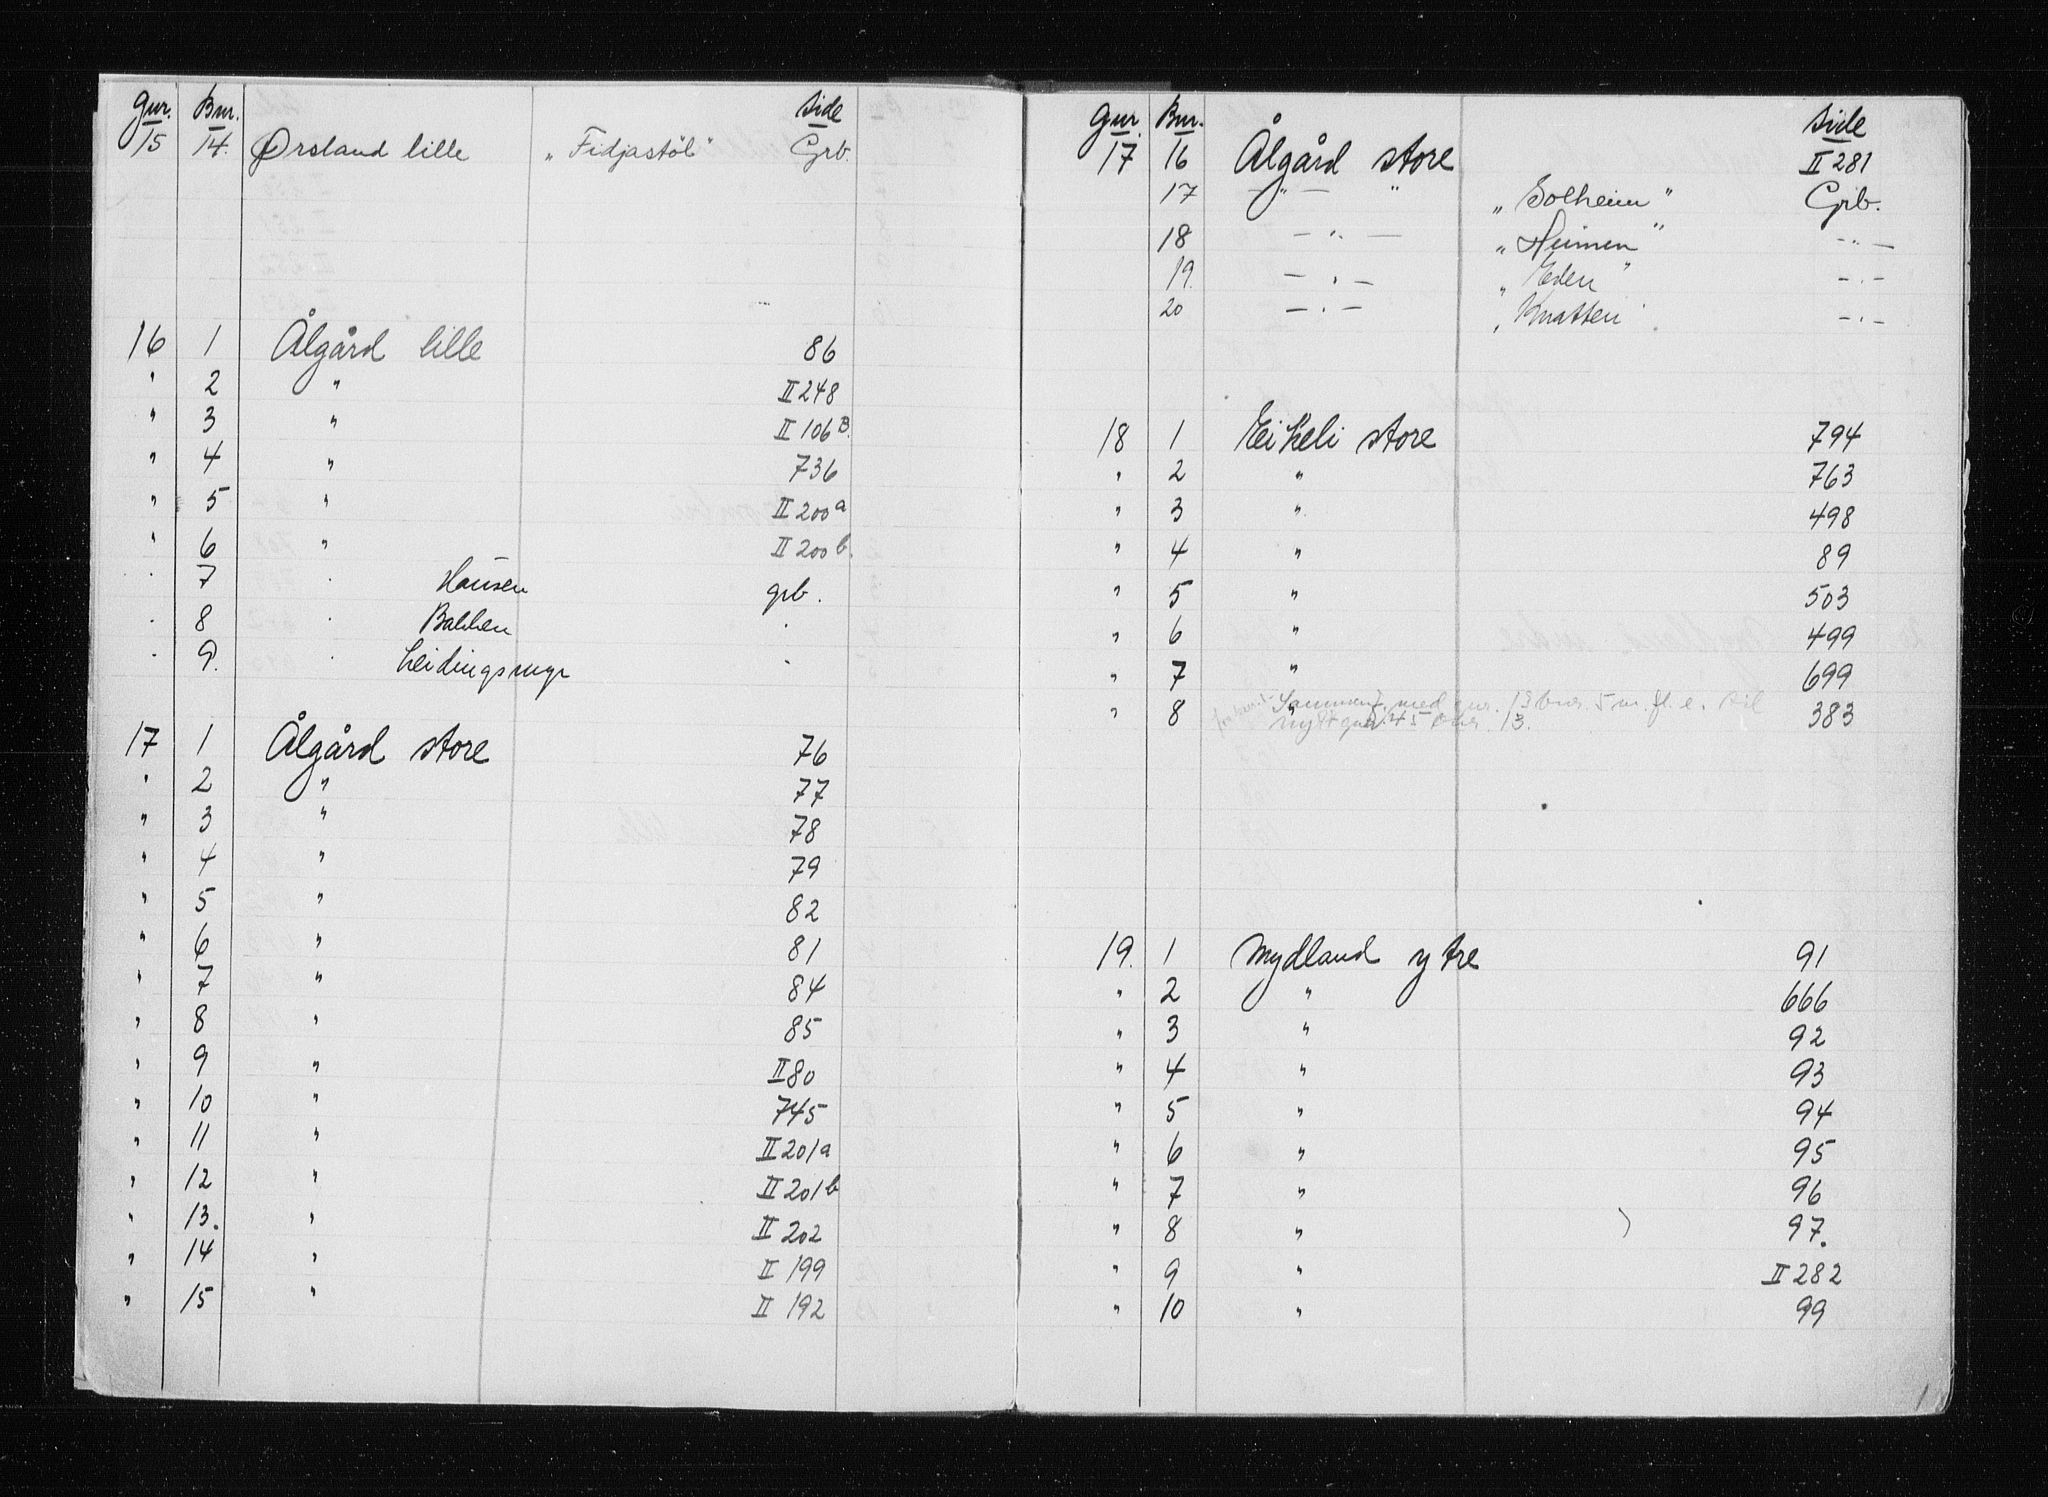 Gnr. Bnr. Side
15 14. Ørsland lille „Fidjastöl" Grb.
16 1 Ålgård lille 86
" 2 " II 248
" 3 " II 106 B.
" 4 " 736
" 5 " II 200 a
" 6 " II 200 b.
" 7 " Hausen grb.
" 8 " Bakken "
" 9. " Leidingsmyr "
17 1 Ålgård store 76
" 2 " 77
" 3 " 78
" 4 " 79
" 5 " 82
" 6 " 81
" 7 " 84
" 8 " 85
" 9 " II 80
" 10 " 745
" 11 " II 201a
" 12 " II 201b
" 13. " II 202
" 14 " II 199
" 15 " II 192
Gnr. Bnr. Side
17 16 Ålgård store II 281
17 — " — " „Solheim" Grb.
18 — " — „Heimen" — " —
19. — " — „Eden" — " —
20 — " — „Knatten" — " —
18 1 Eikeli store 794
" 2 " 763
" 3 " 498
" 4 " 89
" 5 " 503
" 6 " 499
" 7 " 699
" 8 " 383
Sammenf. med gnr. 13 bnr. 5 m. fl. e. til
nytt gnr. 45 bnr. 13.
19. 1 Mydland ytre 91
" 2 " 666
" 3 " 92
" 4 " 93
" 5 " 94
" 6 " 95
" 7 " 96
" 8 " 97.
" 9 " II 282
" 10 " 99